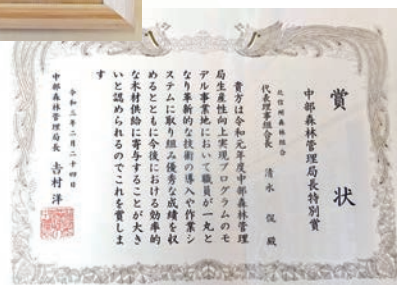 賞状
中部森林管理局長特別賞
北信州森林組合
代表理事組合長 清水 俔 殿
貴方は令和元年度中部森林管理
局生産性向上実現プログラムのモ
デル事業地において職員が一丸と
なり革新的な技術の導入や作業シ
ステムに取り組み優秀な成績を収
めるとともに今後における効率的
な木材供給に寄与することが大き
いと認められるのでこれを賞しま
す
令和三年二月二十四日
中部森林管理局長 吉村 洋